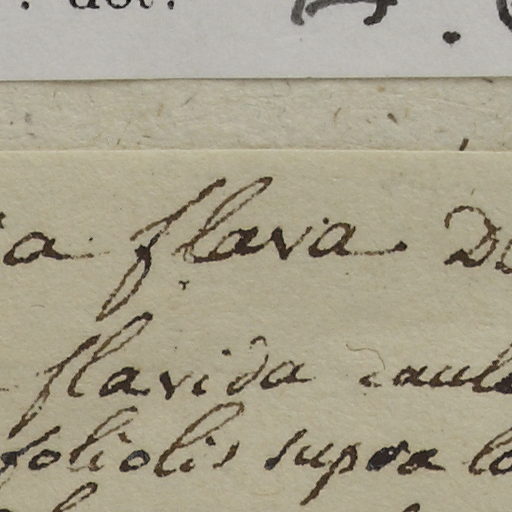 det.
flava
flavida caule
foliolis supra